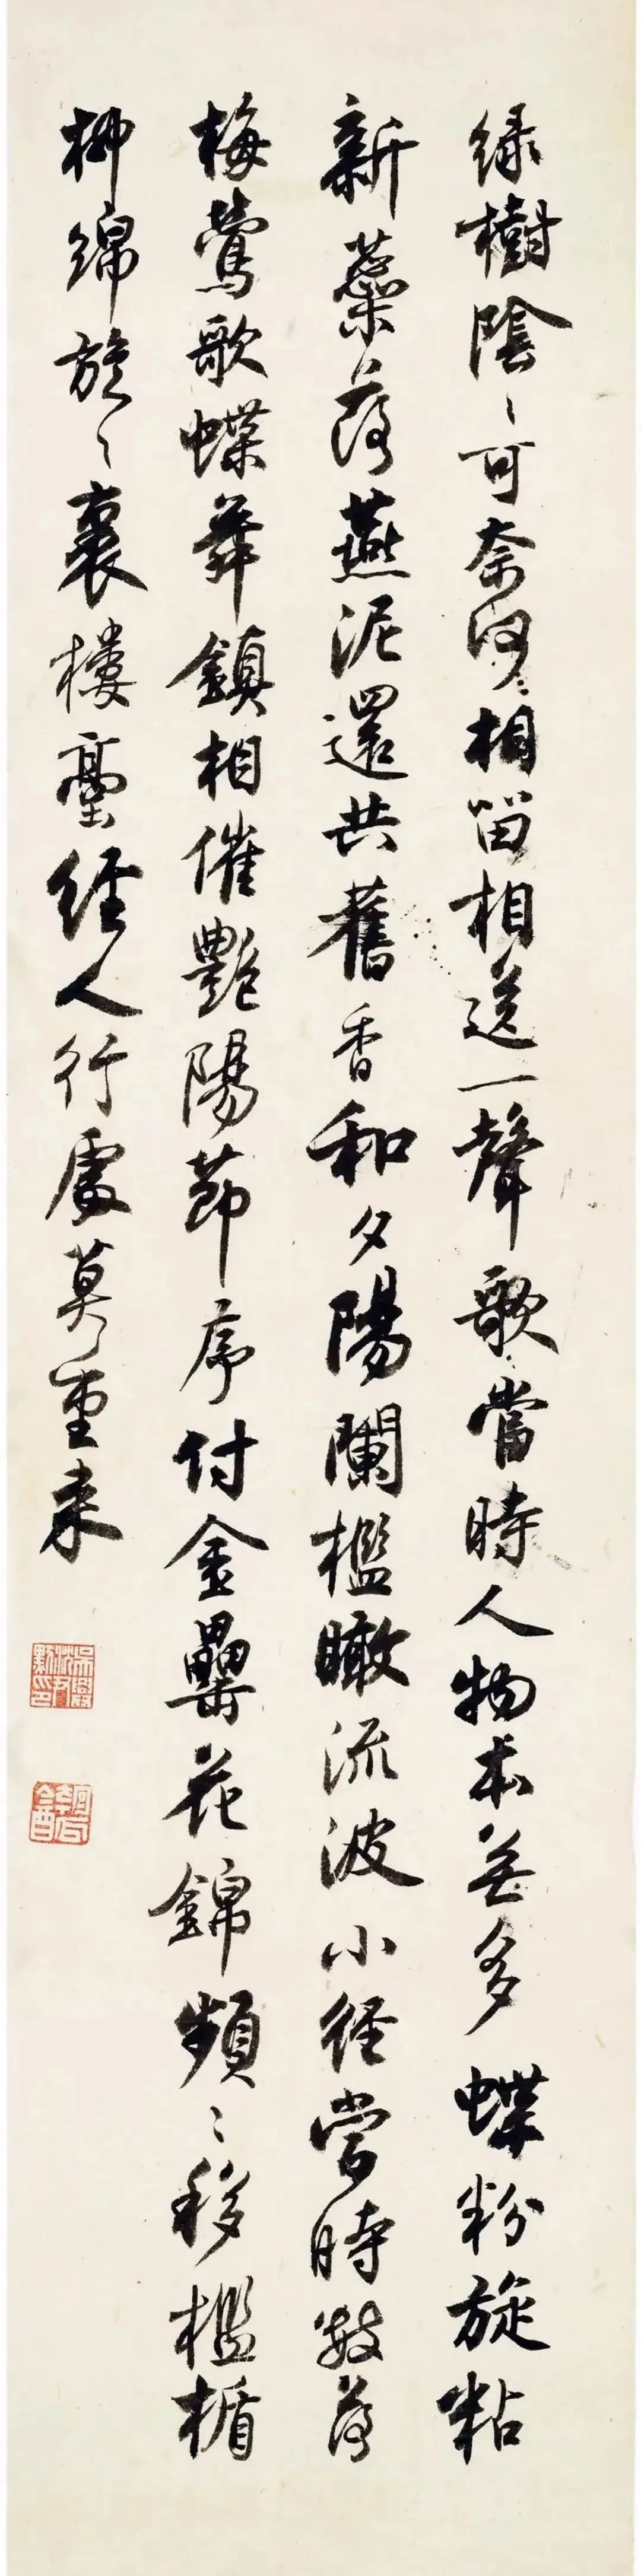 緑樹陰〻可奈何相留相送一聲歌當時人物本無多蝶粉旋粘
新蘂落燕泥還共舊香和夕陽闌檻瞰流波小徑當時數落
梅鶯歌蝶舞鎮相催艷陽節序付金罍花錦頻〻移檻楯
柳綿旋〻裹樓臺經人行處莫重来
吳興沈尹默印